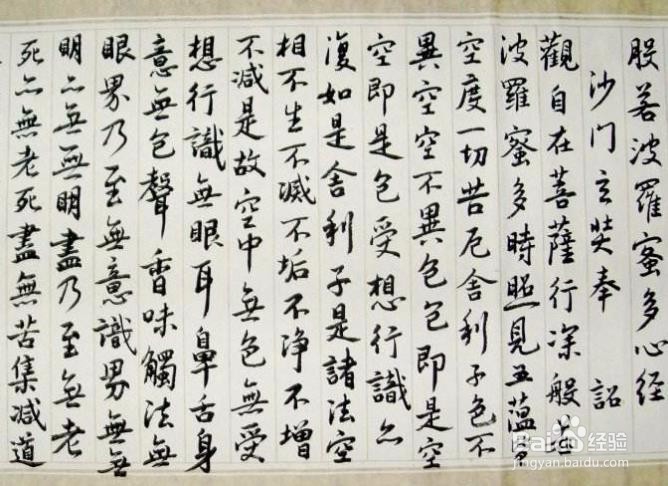 般若波羅蜜多心经
沙门玄奘奉 詔
觀自在菩薩行深般若
波羅蜜多時照見五蕴皆
空度一切苦厄舍利子色不
異空空不異色色即是空
空即是色受想行識亦
復如是舍利子是諸法空
相不生不滅不垢不净不增
不减是故空中無色無受
想行識無眼耳鼻舌身
意無色聲香味觸法無
眼界乃至無意識界無無
明亦無無明盡乃至無老
死亦無老死盡無苦集滅道
Baidu 经验
jingyan.baidu.com